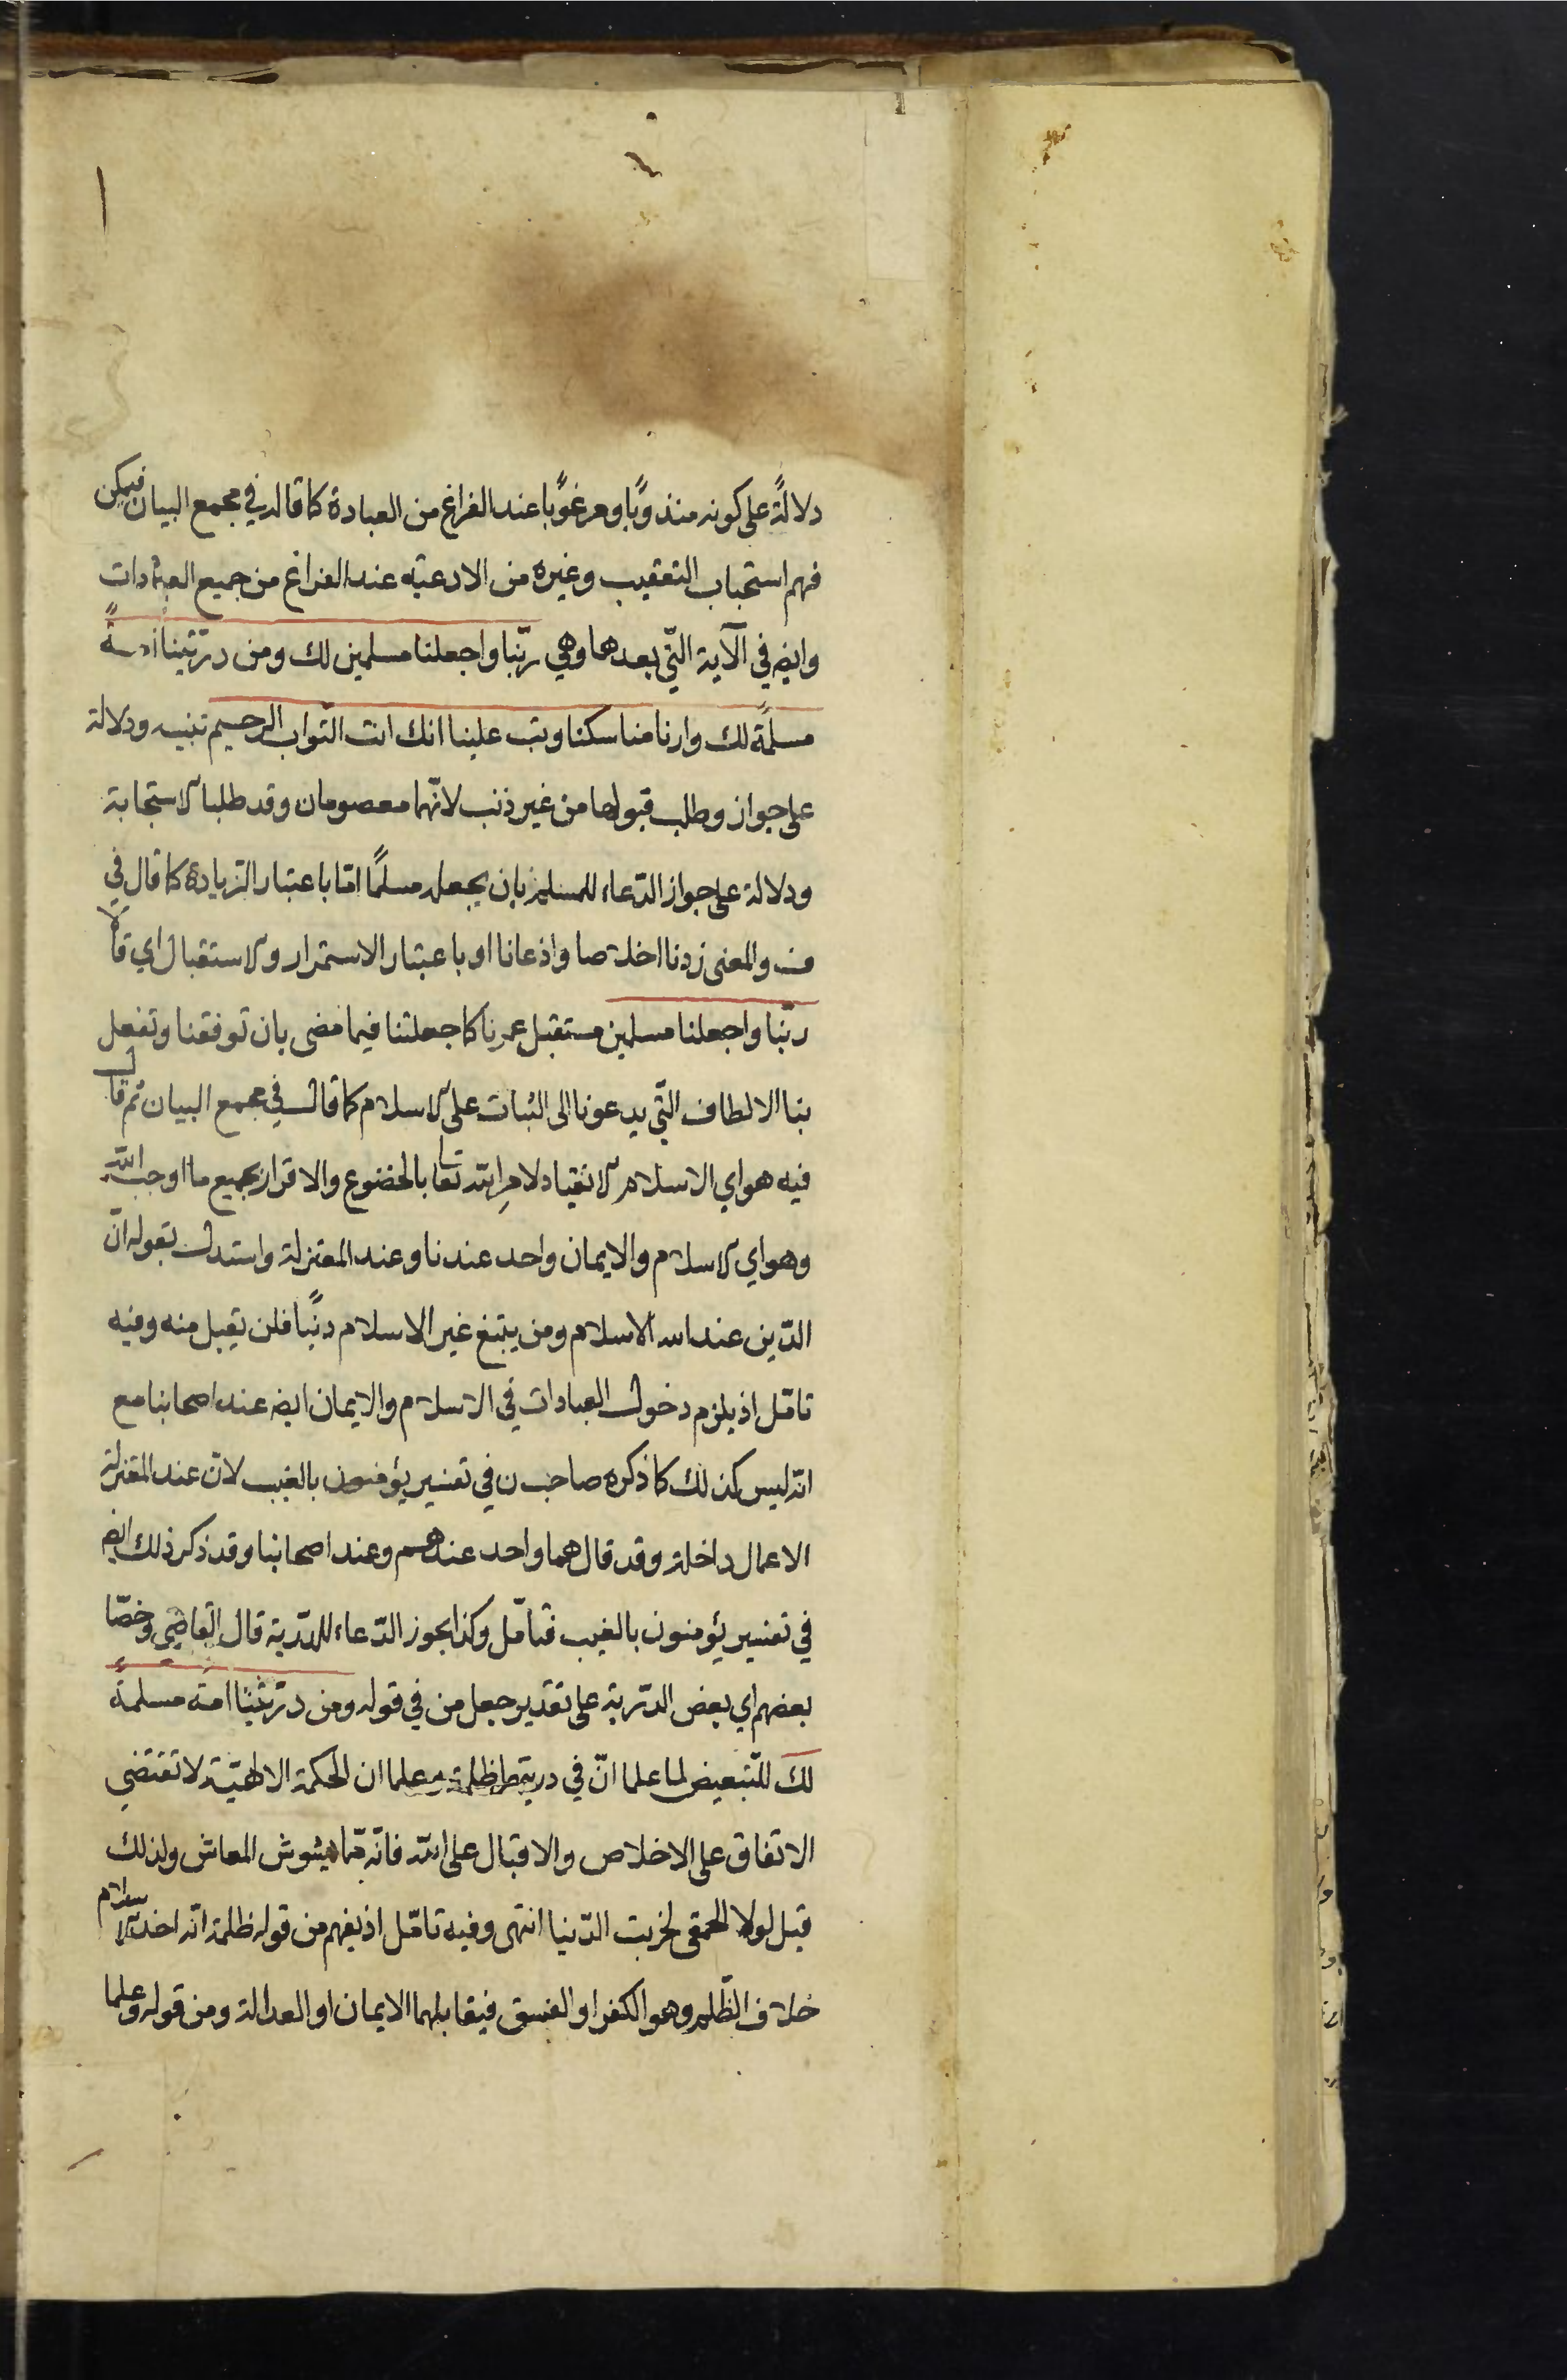 دلالةً على كونه مندوبًا ومرغوبًا عند الفراغ من العبادة كما قاله في مجمع البيان فيمكن
فهم استحباب التعقيب وغيره من الادعية عند الفراغ من جميع العبادات
وايضا في الآية التّي بعدها وهي ربّنا واجعلنا مسلمين لك ومن ذرّيّتنا امةً
مسلمةً لك وارنا مناسكنا وتب علينا انك انت التّواب الرحيم تنبيه ودلالة
على جواز وطلب قبولها من غير ذنب لانّهما معصومان وقد طلبا الاستجابة
ودلالة على جواز الدّعاء للمسلم بان يجعله مسلمًا امّا باعتبار الزيادة كما قال في
ف والمعنى زدنا اخلاصا واذعانا او باعتبار الاستمرار والاستقبال اي قالا
ربّنا واجعلنا مسلمين مستقبل عمرنا كما جعلتنا فيما مضى بان توفقنا وتفعل
بنا الالطاف التّي يدعونا الى الثبات على الاسلام كما قال في مجمع البيان ثم قال
فيه هو اي الاسلام الانقياد لامرِ الله تعا بالخضوع والاقرار بجميع ما اوجب الله
وهو اي الاسلام والايمان واحد عندنا وعند المعتزلة واستدل بقوله انّ
الدّين عند الله الاسلام ومن يبتغ غير الاسلام دينًا فلن يقبل منه وفيه
تامّل اذ يلزم دخول العبادات في الاسلام والايمان ايض عند اصحابنا مع
انّه ليس كذلك كما ذكره صاحب ن في تفسير يؤمنون بالغيب لانّ عند المعتزلة
الاعمال داخلة وقد قال هما واحد عندهم وعند اصحابنا وقد ذكر ذلك ايض
في تفسير يؤمنون بالغيب فتأمّل وكذا يجوز الدّعاء للذّرية قال القاضي وخصّا
بعضهم اي بعض الذّرية على تقدير جعل من في قوله ومن ذرّيّتنا امّة مسلمةً
لك للتّبعيض لما علما انّ في ذريتهما ظلمة وعلما ان الحكمة الالهيّة لا تقتضي
الاتفاق على الاخلاص والاقبال على الله فانّه ممّا يشوش المعاش ولذلك
قيل لولا الحمقى لخربت الدّنيا انتهى وفيه تامّل اذ يفهم من قوله ظلمة انّه اخذ الاسلام
خلاف الظّلم وهو الكفر او الفسق فيقابلهما الايمان او العدالة ومن قوله وعلما